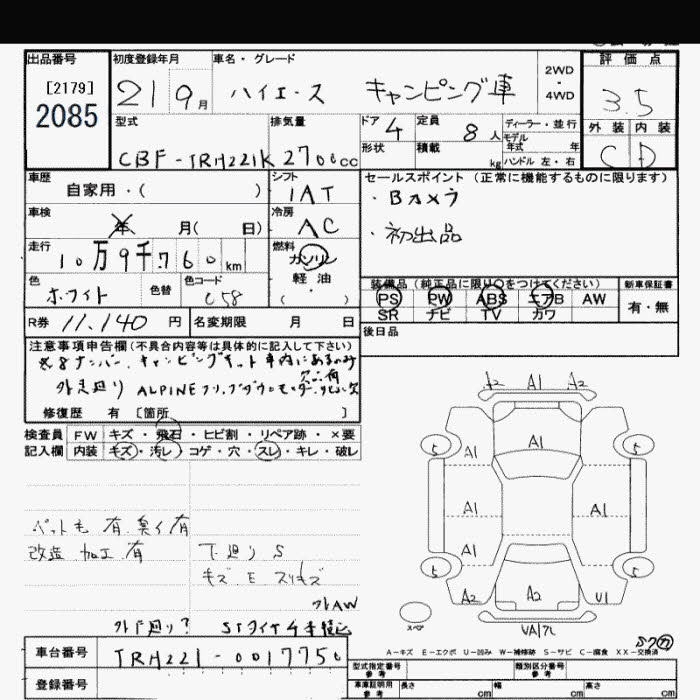 出品番号 初度登録年月 車名・グレード 評価点
[2179]
2085 21 9月 ハイエース キャンピング車 2WD・4WD 3.5
型式 排気量 ドア 4 定員 8人 ディーラー・並行 外装 内装
CBF-TRH221K 2700cc 形状 積載 kg モデル年式 年 C D
ハンドル 左・右
車歴 シフト セールスポイント (正常に機能するものに限ります)
自家用・( ) IAT ・Bカメラ
車検 年 月( 日) 冷房 AC ・初出品
走行 10万9千760km 燃料 ガソリン
色 色替 色コード 軽油
ホワイト C58 ( ・ )
装備品 (純正品に限り○をつけてください) 新車保証書
PS PW ABS エアB AW 有・無
SR ナビ TV カワ
R券 11,140円 名変期限 月 日 後日品
注意事項申告欄(不具合内容等は具体的に記入して下さい)
8ナンバー キャンピングキット車内にあるのみ
外足廻り ALPINE
修復歴 有 [箇所 ]
検査員 FW キズ・飛石・ヒビ割・リペア跡・×要
記入欄 内装 キズ・汚レ・コゲ・穴・スレ・キレ・破レ
A2 A1 A2
A1
5 A1 5
A1 A1
A1
5 5
A2 A2 U1
スペア
ペット毛 有 臭イ有
改造 加工 有 下廻り S
キズ E スリキズ
外AW
外下廻り? STタイヤ4本積込
A-キズ E-エクボ U-凹み W-補修跡 S-サビ C-腐食 XX-交換済
車台番号 TRH221-0017750
登録番号
型式指定番号 参考 類別区分番号 参考
車庫証明用 参考 長さ cm 幅 cm 高さ cm